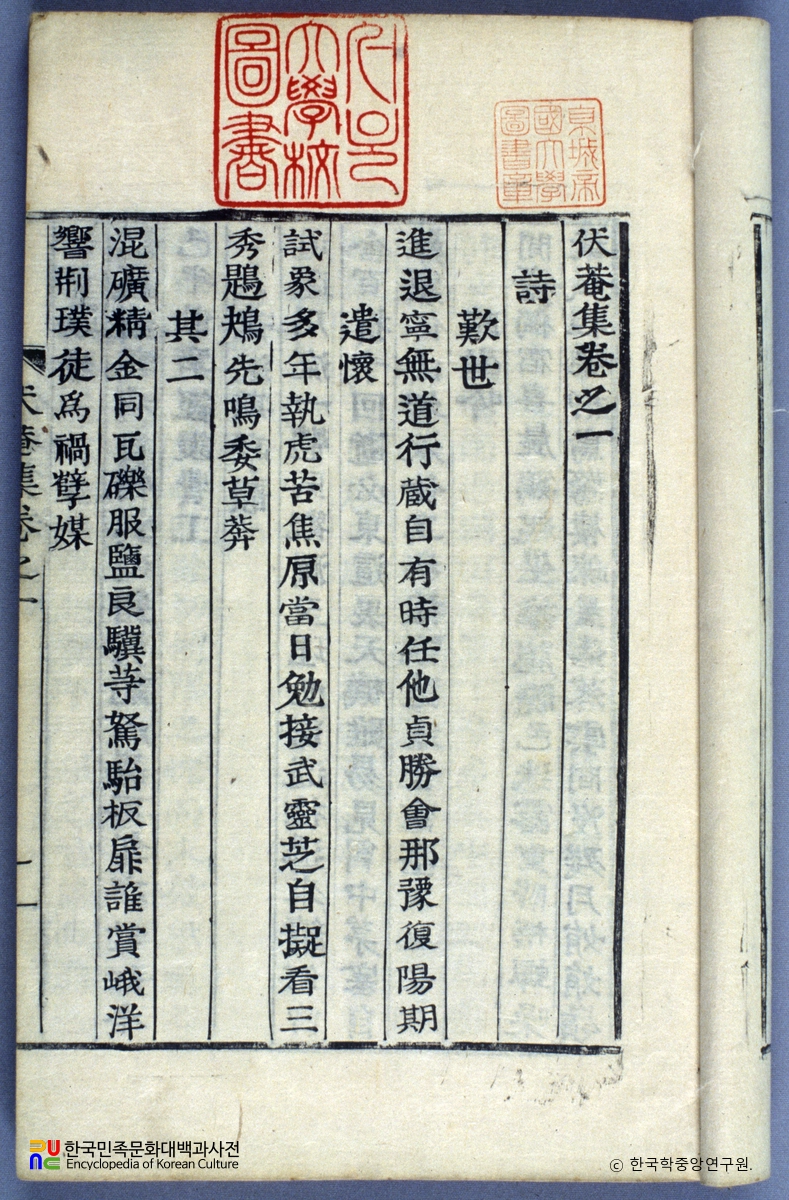 서울
大學校
圖書
京城帝
國大學
圖書章
伏菴集卷之一
詩
歎世
進退寧無道行蔵自有時任他貞勝會那豫復陽期
遣懷
試象多年執虎苦焦原當日勉接武靈芝自擬看三
秀鶗鴂先鳴委草莽
其二
混礦精金同瓦礫服鹽良驥等駑駘板扉誰賞峨洋
響荆璞徒爲禍孽媒
伏菴集卷之一
一
한국민족문화대백과사전
Encyclopedia of Korean Culture
© 한국학중앙연구원.